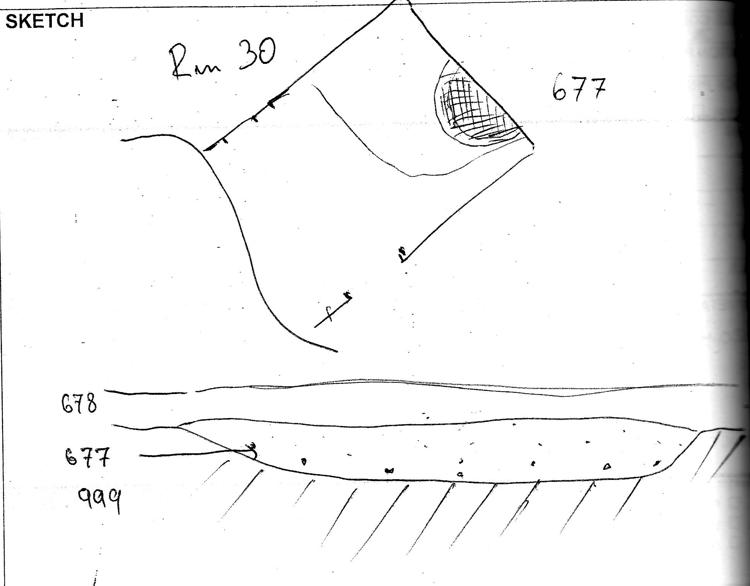 SKETCH
Rm 30
677
678
677
999